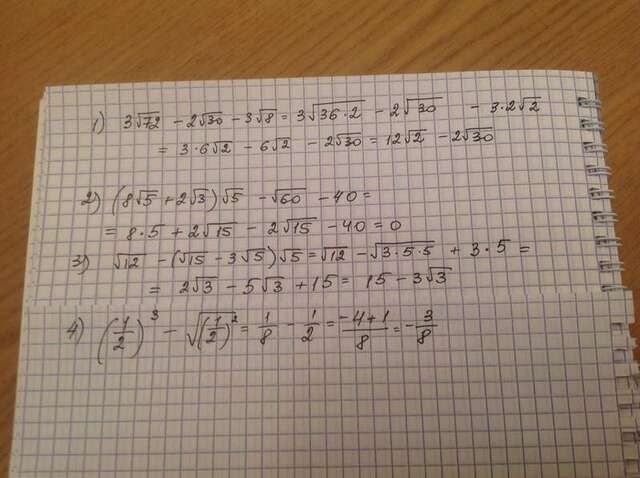 1) 3√72 - 2√30 - 3√8 = 3√36·2 - 2√30 - 3·2√2
= 3·6√2 - 6√2 - 2√30 = 12√2 - 2√30
2) (8√5 + 2√3)√5 - √60 - 40 =
= 8·5 + 2√15 - 2√15 - 40 = 0
3) √12 - (√15 - 3√5)√5 = √12 - √3·5·5 + 3·5 =
= 2√3 - 5√3 + 15 = 15 - 3√3
4) (1/2)³ - √(1/2)² = 1/8 - 1/2 = -4+1/8 = -3/8